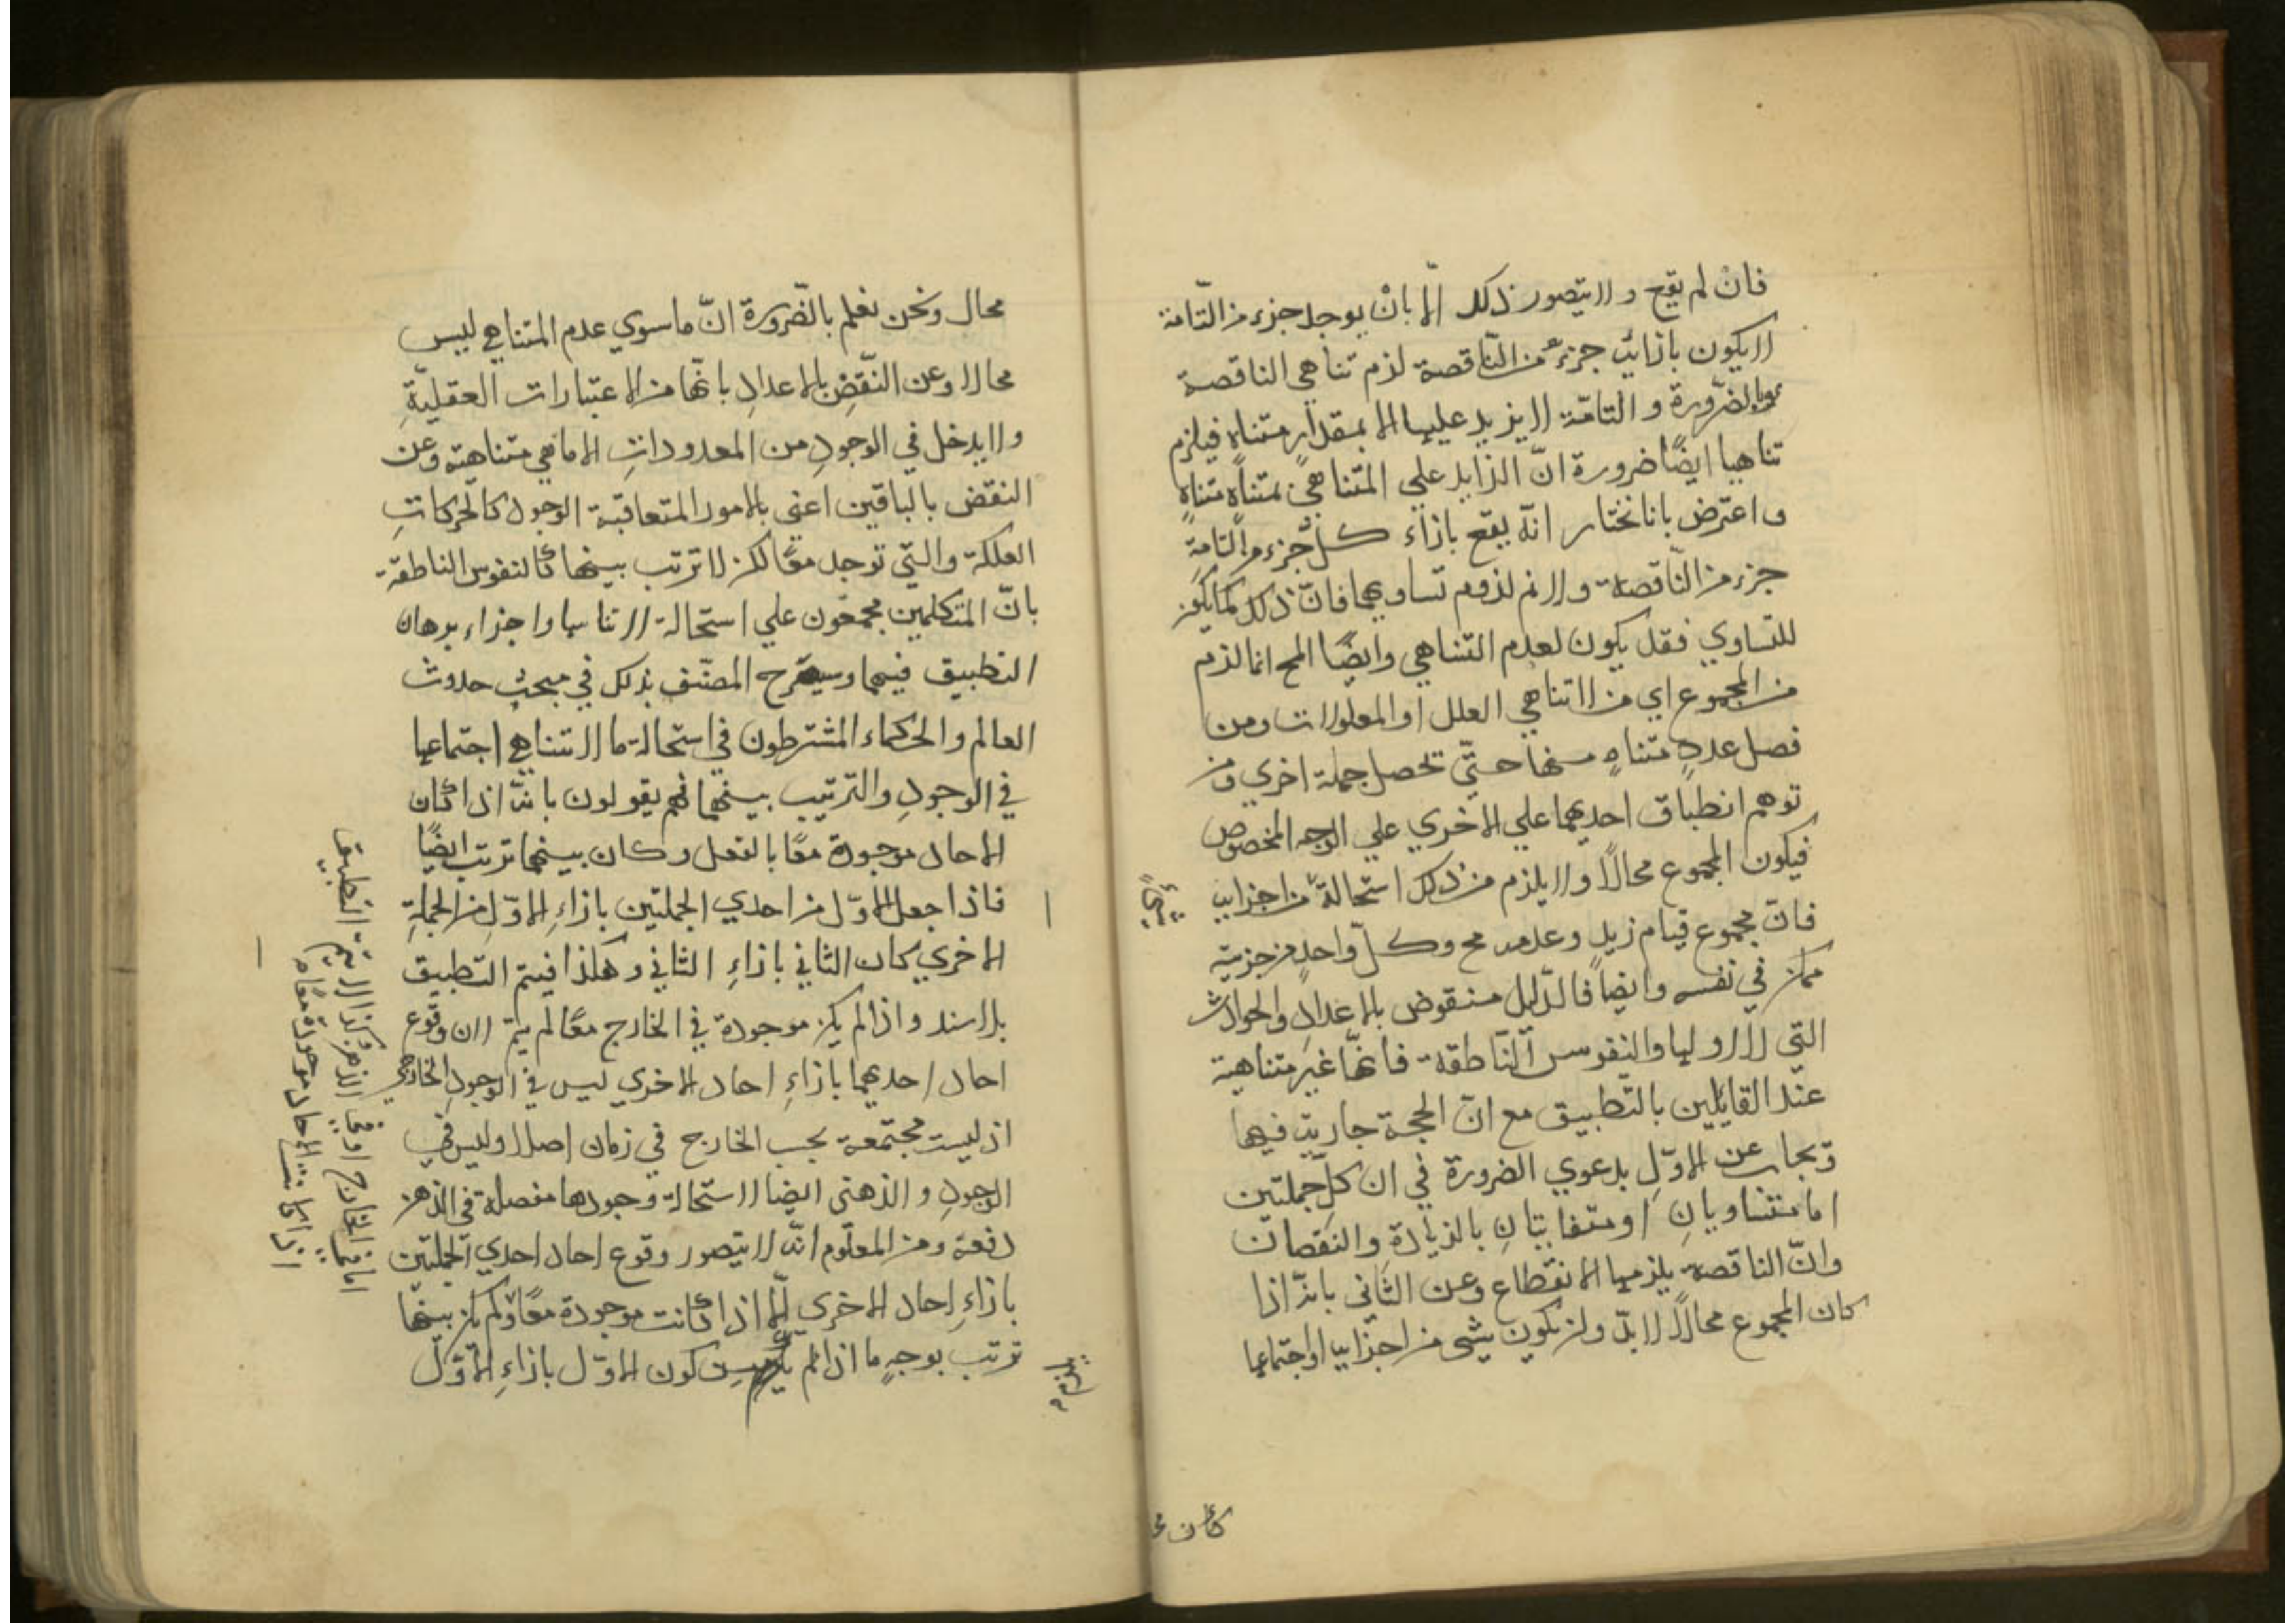 فان لم يقع ولا يتصور ذلك الا بانْ يوجد جزء من التّامة
لا يكون بازائه جزءٌ من النّاقصة لزم تناهي الناقصة
بالضرورة والتامّة لا يزيد عليها الا بمقدارٍ متناهٍ فيلزم
تناهيها ايضًا ضرورة انّ الزايد علي المتناهي بمتناهٍ متناهٍ
واعترض بانا نختار انّه يقع بازاء كلّ جزء من التامةِ
جزء من النّاقصة ولا نم لزوم تساويهما فانّ ذلك كما يكون
للتساوي فقد يكون لعدم التناهي وايضًا المح انما لزم
من المجموع اي من لا تناهي العلل او المعلولات ومن
فصل عددٍ متناهٍ منها حتّي تحصل جملة اخري ومن
توهم انطباق احديهما علي الاخري علي الوجه المخصوص
فيكون المجموع محالًا ولا يلزم من ذلك استحالةٌ من اجزايه
فانّ مجموع قيام زيدٍ وعدمه مح وكلّ واحدٍ من جزئيه
ممكن في نفسه وايضًا فالدّليل منقوض بالاعدادِ والحوادث
التي لا اول لها والنفوس النّاطقة فانّها غير متناهية
عند القايلين بالتّطبيق مع انّ الحجة جارية فيها
ويجاب عن الاوّلِ بدعوي الضرورة في ان كلّ جملتين
اما متساويانِ او متفاوتتانِ بالزيادةِ والنقصان
وانّ الناقصة يلزمها الانقطاع وعن الثانى بانّه اذا
كان المجموع محالًا لا بدّ ولن يكون شئ من اجزايها او اجتماعها
كان مح
محال ونحن نعلم بالضّرورة انّ ما سوي عدم المتناهي ليس
محالا وعن النّقضِ بالاعدادِ بانّها من الاعتبارات العقليّةِ
ولا يدخل في الوجودِ من المعدوداتِ الا ما هي متناهيه وعن
النقض بالباقين اعني بالامور المتعاقبة الوجود كالحركاتِ
الفلكة والتّي توجد معًا لكن لا ترتب بينها كالنفوس الناطقة
بانّ المتكلمين مجمعون علي استحالة لا تناهيها واجراء برهان
التطبيق فيهما وسيصرح المصنّف بذلك في مبحث حدوث
العالم والحكماء المشترطون في استحالة ما لا يتناهي اجتماعها
في الوجودِ والترتيب بينهما فهم يقولون بانّه اذا كان
الاحاد موجودة معًا بالفعل وكان بينهما ترتب ايضًا
فاذا جعل الاوّل من احدي الجملتين بازاءِ الاوّلِ من الجملةِ
الاخري كان الثاني بازاءِ الثاني وهكذا فيتم التّطبيق
بلا سند واذا لم يكن موجودة في الخارج معًا لم يتم لان وقوع
احاد احديهما بازاءِ احاد الاخري ليس في الوجودِ الخارجي
اذ ليست مجتمعة بحسب الخارج في زمان اصلا وليس في
الوجودِ والذهنى ايضا لاستحالة وجودها مفصلة في الذهن
دفعة ومن المعلوم انّه لا يتصور وقوع احاد احدي الجملتين
بازاءِ احاد الاخري الّا اذا كانت موجودة معًا ولم يكن بينهما
ترتب بوجهٍ ما اذا لم يلزم من كون الاوّل بازاءِ الاوّل
يلزم
اما في الخارج او في الذهن وكذا لا يتم التطبيق
اذا كانت الاحاد موجودة معا